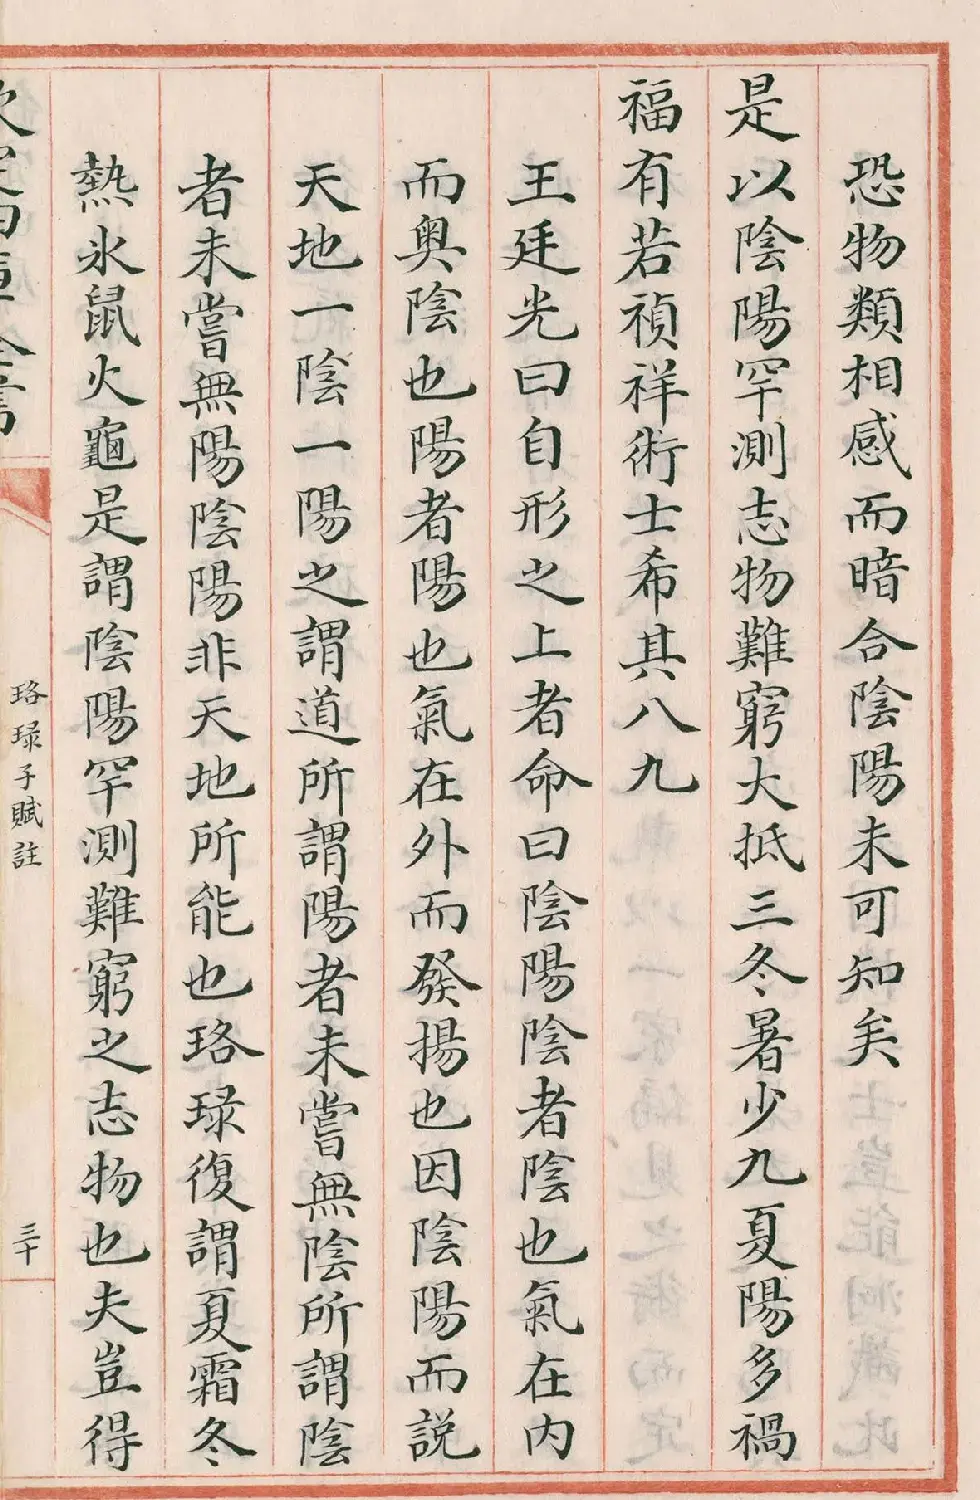 恐物類相感而暗合陰陽未可知矣
是以陰陽罕測志物難窮大抵三冬暑少九夏陽多禍
福有若禎祥術士希其八九
王廷光曰自形之上者命曰陰陽陰者陰也氣在內
而奥陰也陽者陽也氣在外而發揚也因陰陽而説
天地一陰一陽之謂道所謂陽者未嘗無陰所謂陰
者未嘗無陽陰陽非天地所能也珞琭復謂夏霜冬
熱氷鼠火龜是謂陰陽罕測難窮之志物也夫豈得
珞琭子賦註
三十